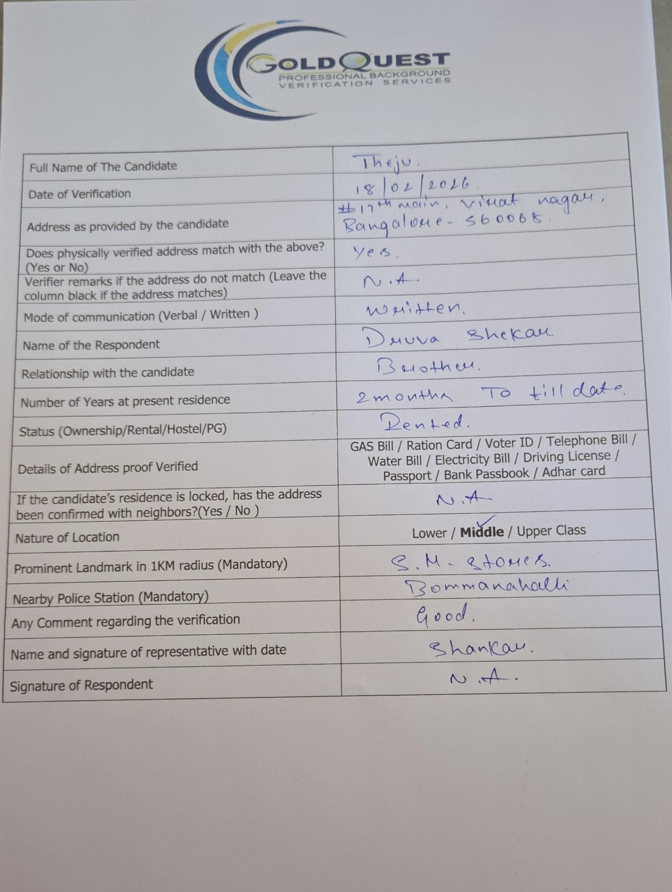 GOLDQUEST
PROFESSIONAL BACKGROUND
VERIFICATION SERVICES
Full Name of The Candidate
Theju.
Date of Verification
18/02/2026.
Address as provided by the candidate
#17th main, Virat nagar,
Bangalore - 560068.
Does physically verified address match with the above?
(Yes or No)
Yes.
Verifier remarks if the address do not match (Leave the
column black if the address matches)
N.A
Mode of communication (Verbal / Written )
Written.
Name of the Respondent
Druva Shekar
Relationship with the candidate
Brother.
Number of Years at present residence
2 months To till date.
Status (Ownership/Rental/Hostel/PG)
Rented.
Details of Address proof Verified
GAS Bill / Ration Card / Voter ID / Telephone Bill /
Water Bill / Electricity Bill / Driving License /
Passport / Bank Passbook / Adhar card
If the candidate's residence is locked, has the address
been confirmed with neighbors?(Yes / No )
N.A
Nature of Location
Lower / Middle / Upper Class
Prominent Landmark in 1KM radius (Mandatory)
S.M. Stores.
Nearby Police Station (Mandatory)
Bommanahalli
Any Comment regarding the verification
Good.
Name and signature of representative with date
Shankar.
Signature of Respondent
N.A.